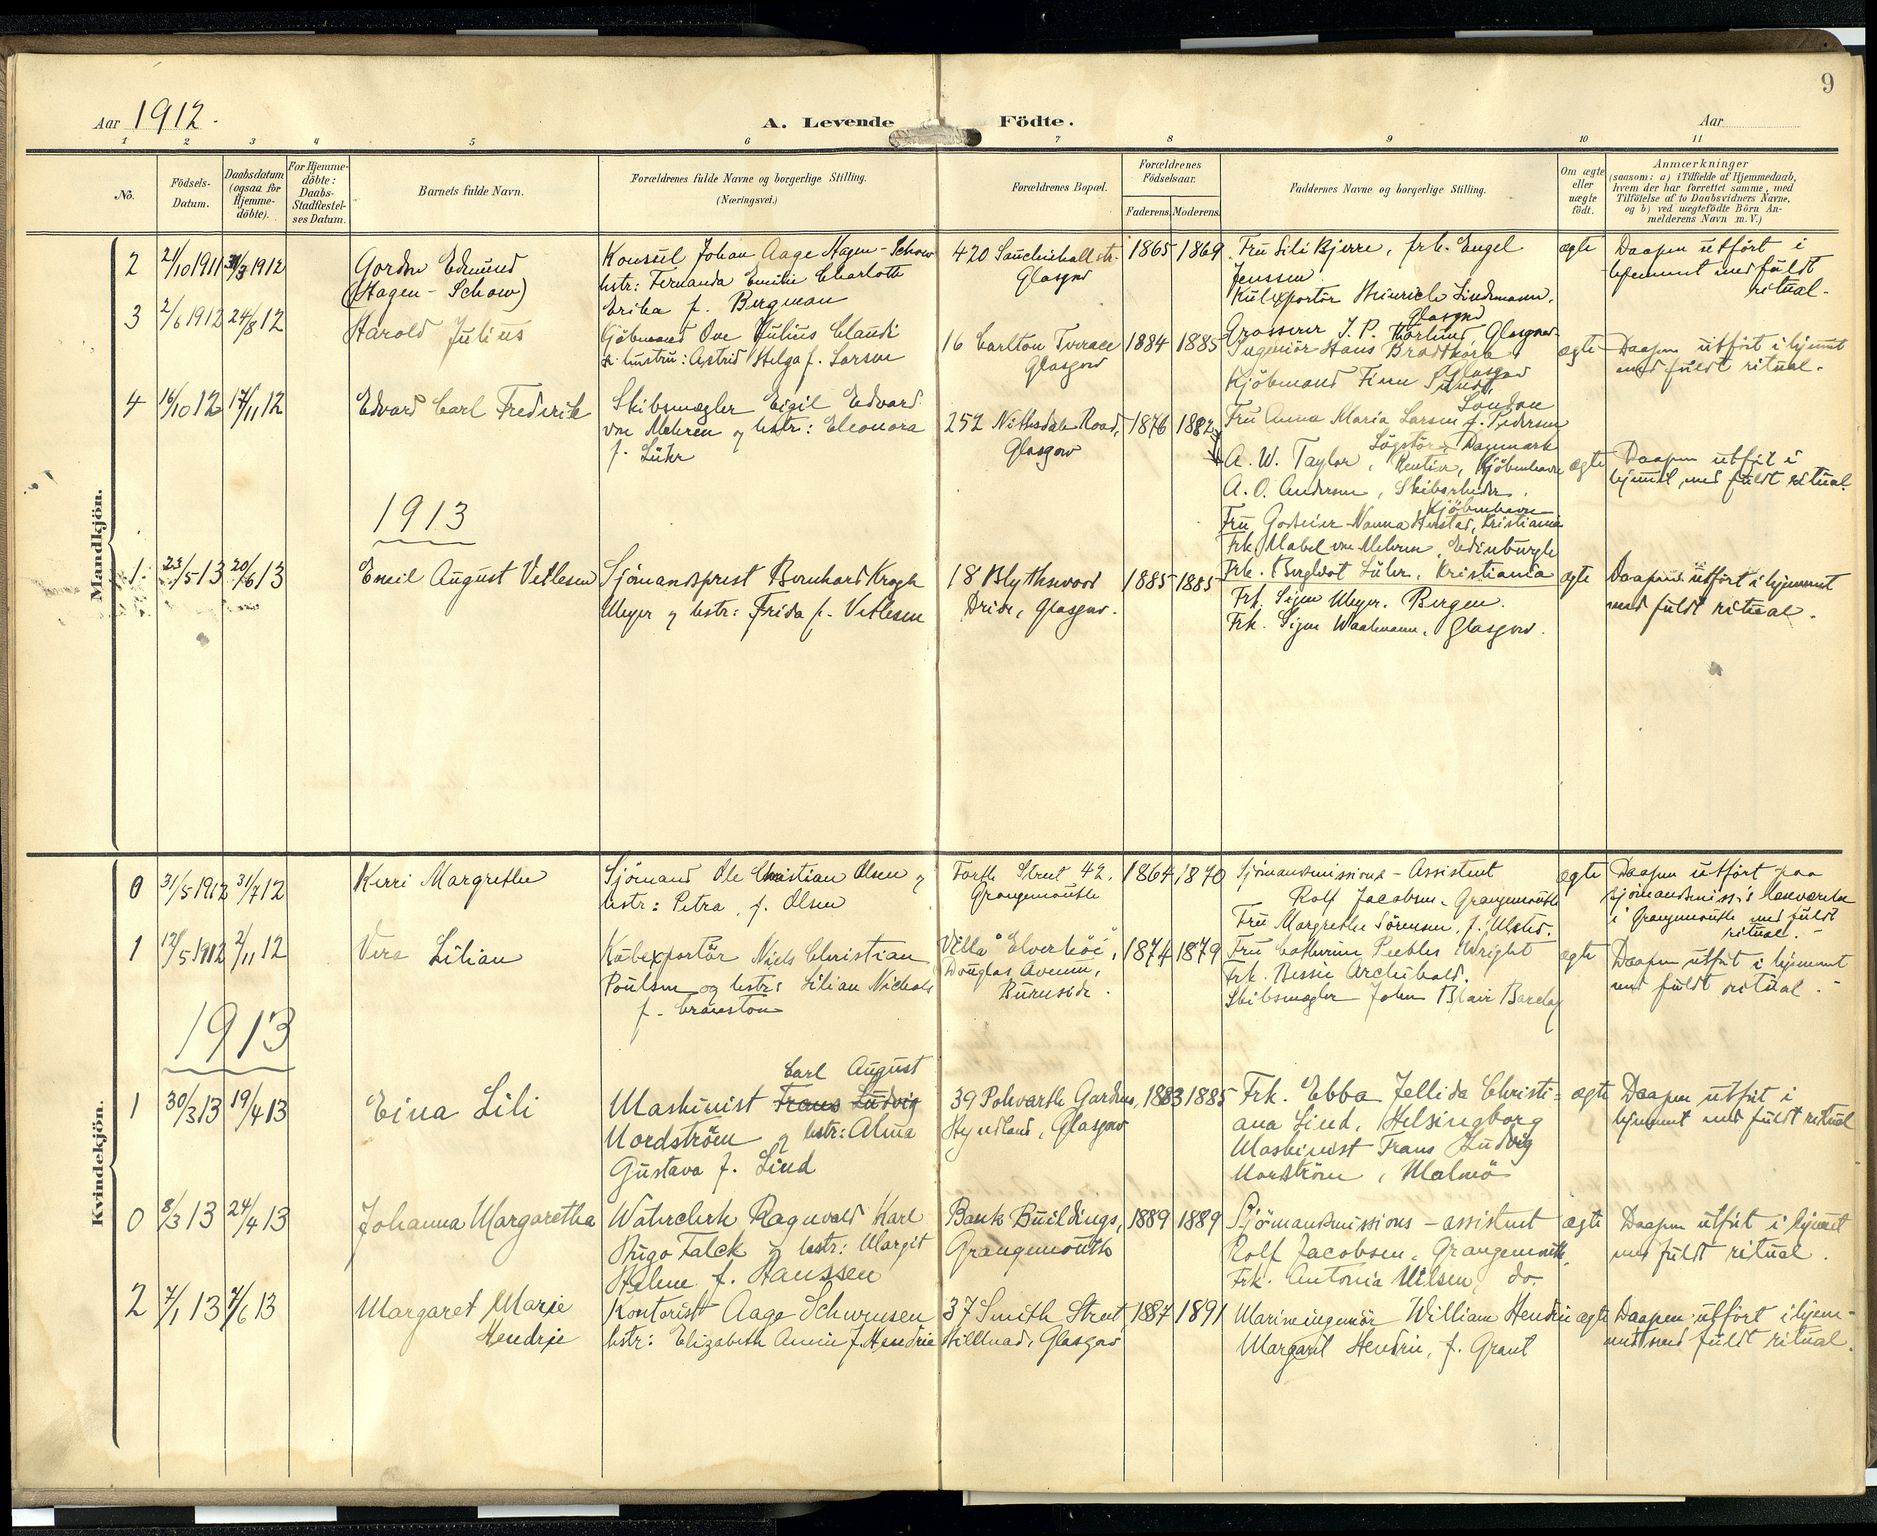 9
Aar 1912.
A. Levende Födte.
Aar
1 2 3 4 5 6 7 8 9 10 11
No.
Födsels-
Datum.
Daabsdatum
(ogsaa for
Hjemme-
döbte).
For Hjemme-
döbte:
Daabs-
Stadfæstel-
ses Datum.
Barnets fulde Navn.
Forældrenes fulde Navne og borgerlige Stilling.
(Næringsvei.)
Forældrenes Bopæl.
Forældrenes
Födselsaar.
Faderens. Moderens.
Faddernes Navne og borgerlige Stilling.
Om ægte
eller
uægte
födt.
Anmærkninger
(saasom: a) i Tilfælde af Hjemmedaab,
hvem der har forrettet samme, med
Tilföielse af to Daabsvidners Navne,
og b) ved uægtefödte Börn An-
melderens Navn m. V.)
Mandkjön.
2
21/10 1911
31/3 1912
Gordon Edmund
(Hagen-Schow)
Konsul Johan Aage Hagen-Schow
hstr: Fernanda Emilie Charlotte
Erika f. Bergman
420 Sauchiehall str.
Glasgow
1865
1869
Fru Lili Bjerre, frk. Engel
Jenssen
Kulexportör Hinrich Lindemann,
Glasgow
Grosserer J. P. Glasgow
ægte
Daapen utført i
hjemmet med fuldt
ritual.
3
2/6 1912
24/8 12
Harold Julius
Kjöbmand Ove Julius Claudi
& hustru: Astrid Helga f. Larsen
16 Carlton Terrace
Glasgow
1884
1885
Ingeniör Hans Bradtkorb,
Glasgow
Kjöbmand Finn
London
Fru Anna Maria Larsen f. Pedersen
Lögstör, Danmark
ægte
Daapen utført i hjemmet
med fuldt ritual.
4
16/10 12
17/11 12
Edvard Carl Frederik
Skibsmægler Eigil Edvard
von Mehren og hstr: Eleonora
f. Lühr
252 Nithsdale Road,
Glasgow
1876
1882
A. W. Taylor, Rentier, Kjöbenhavn
A. O. Andersen, Skibsrheder,
Kjöbenhavn
Fru Nanna Herstad, Kristiania
Frk. Mabel von Mehren, Edinburgh
Frk. Bergliot Lühr, Kristiania
ægte
Daapen utført i
hjemmet med fuldt ritual.
1913
1.
23/5 13
20/6 13
Emeil August Vetlesen
Sjømandsprest Bernhard Krogh
Meyer og hstr: Frida f. Vetlesen
18 Blythswood
Drive, Glasgow.
1885
1885
Frk. Signe Meyer. Bergen.
Frk. Signe Waalmann, Glasgow.
ægte
Daapen utført i hjemmet
med fuldt ritual.
Kvindekjön.
0
31/5 1912
31/7 12
Kirri Margrethe
Sjømand Ole Christian Olsen og
hstr: Petra, f. Olsen
Forth Street 42,
Grangemouth
1864
1870
Sjømandsmissions-Assistent
Rolf Jacobsen, Grangemouth
Fru Margrethe Sörensen, f. Ulsted.
ægte
Daapen utført paa
sjømandsmiss.s læseværelse
i Grangemouth med fuldt
ritual.
1
12/5 1912
2/11 12
Vera Lilian
Kulexportör Niels Christian
Poulsen og hstr: Lilian Nichols
f. Cranston
Villa "Elverhöi",
Douglas Avenue,
Burnside.
1874
1879
Fru Catherine Peebles Wright
Frk. Bessie Archibald.
Skibsmægler John Blair Barclay
ægte
Daapen utført i hjemmet
med fuldt ritual.
1913
1
30/3 13
19/4 13
Eina Lili
Carl August
Maskinist Frans Ludvig
Nordström og hstr: Alma
Gustava f. Lind
39 Polwarth Gardens,
Hyndland, Glasgow
1883
1885
Frk. Ebba Jellida Christi=
ana Lind, Helsingborg
Maskinist Frans Ludvig
Nordström, Malmö
ægte
Daapen utført i
hjemmet med fuldt ritual
0
8/3 13
24/4 13
Johanna Margaretha
Waterclerk Ragnvald Karl
Hugo Falck og hstr: Margit
Helene f. Hanssen
Bank Buildings,
Grangemouth
1889
1889
Sjømandsmissions-assistent
Rolf Jacobsen, Grangemouth.
Frk. Antonia Nilsen, do.
ægte
Daapen utført i hjemmet
med fuldt ritual.
2
7/1 13
7/6 13
Margaret Marie
Hendrie
Kontorist Aage Schwensen
hstr: Elizabeth Annie f. Hendrie
37 Smith Street
Hillhead, Glasgow
1887
1891
Marineingeniör William Hendrie
Margaret Hendrie, f. Grant
ægte
Daapen utført i hjem-
met med fuldt ritual.